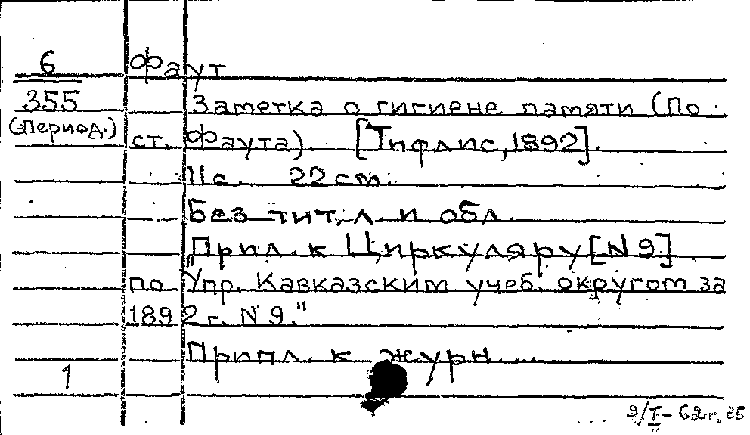 6 Фаут
355 Заметка о гигиене памяти (По
(Период.) ст. Фаута). [Тифлис, 1892].
11 с. 22 см.
Без тит. л. и обл.
"Прил. к Циркуляру [N 9]
по Упр. Кавказским учеб. округом за
1892 г. N 9."
Припл. к журн...
1